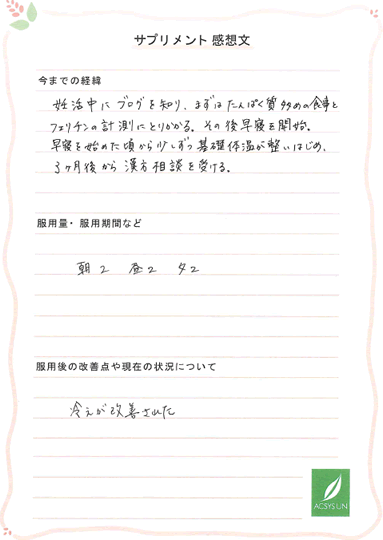 サプリメント 感想文
今までの経緯
妊活中にブログを知り、まずはたんぱく質多めの食事と
フェリチンの計測にとりかかる。その後早寝を開始。
早寝を始めた頃から少しずつ基礎体温が整いはじめ、
3ヶ月後から漢方相談を受ける。
服用量・服用期間など
朝2 昼2 夕2
服用後の改善点や現在の状況について
冷えが改善された
ACSYSUN